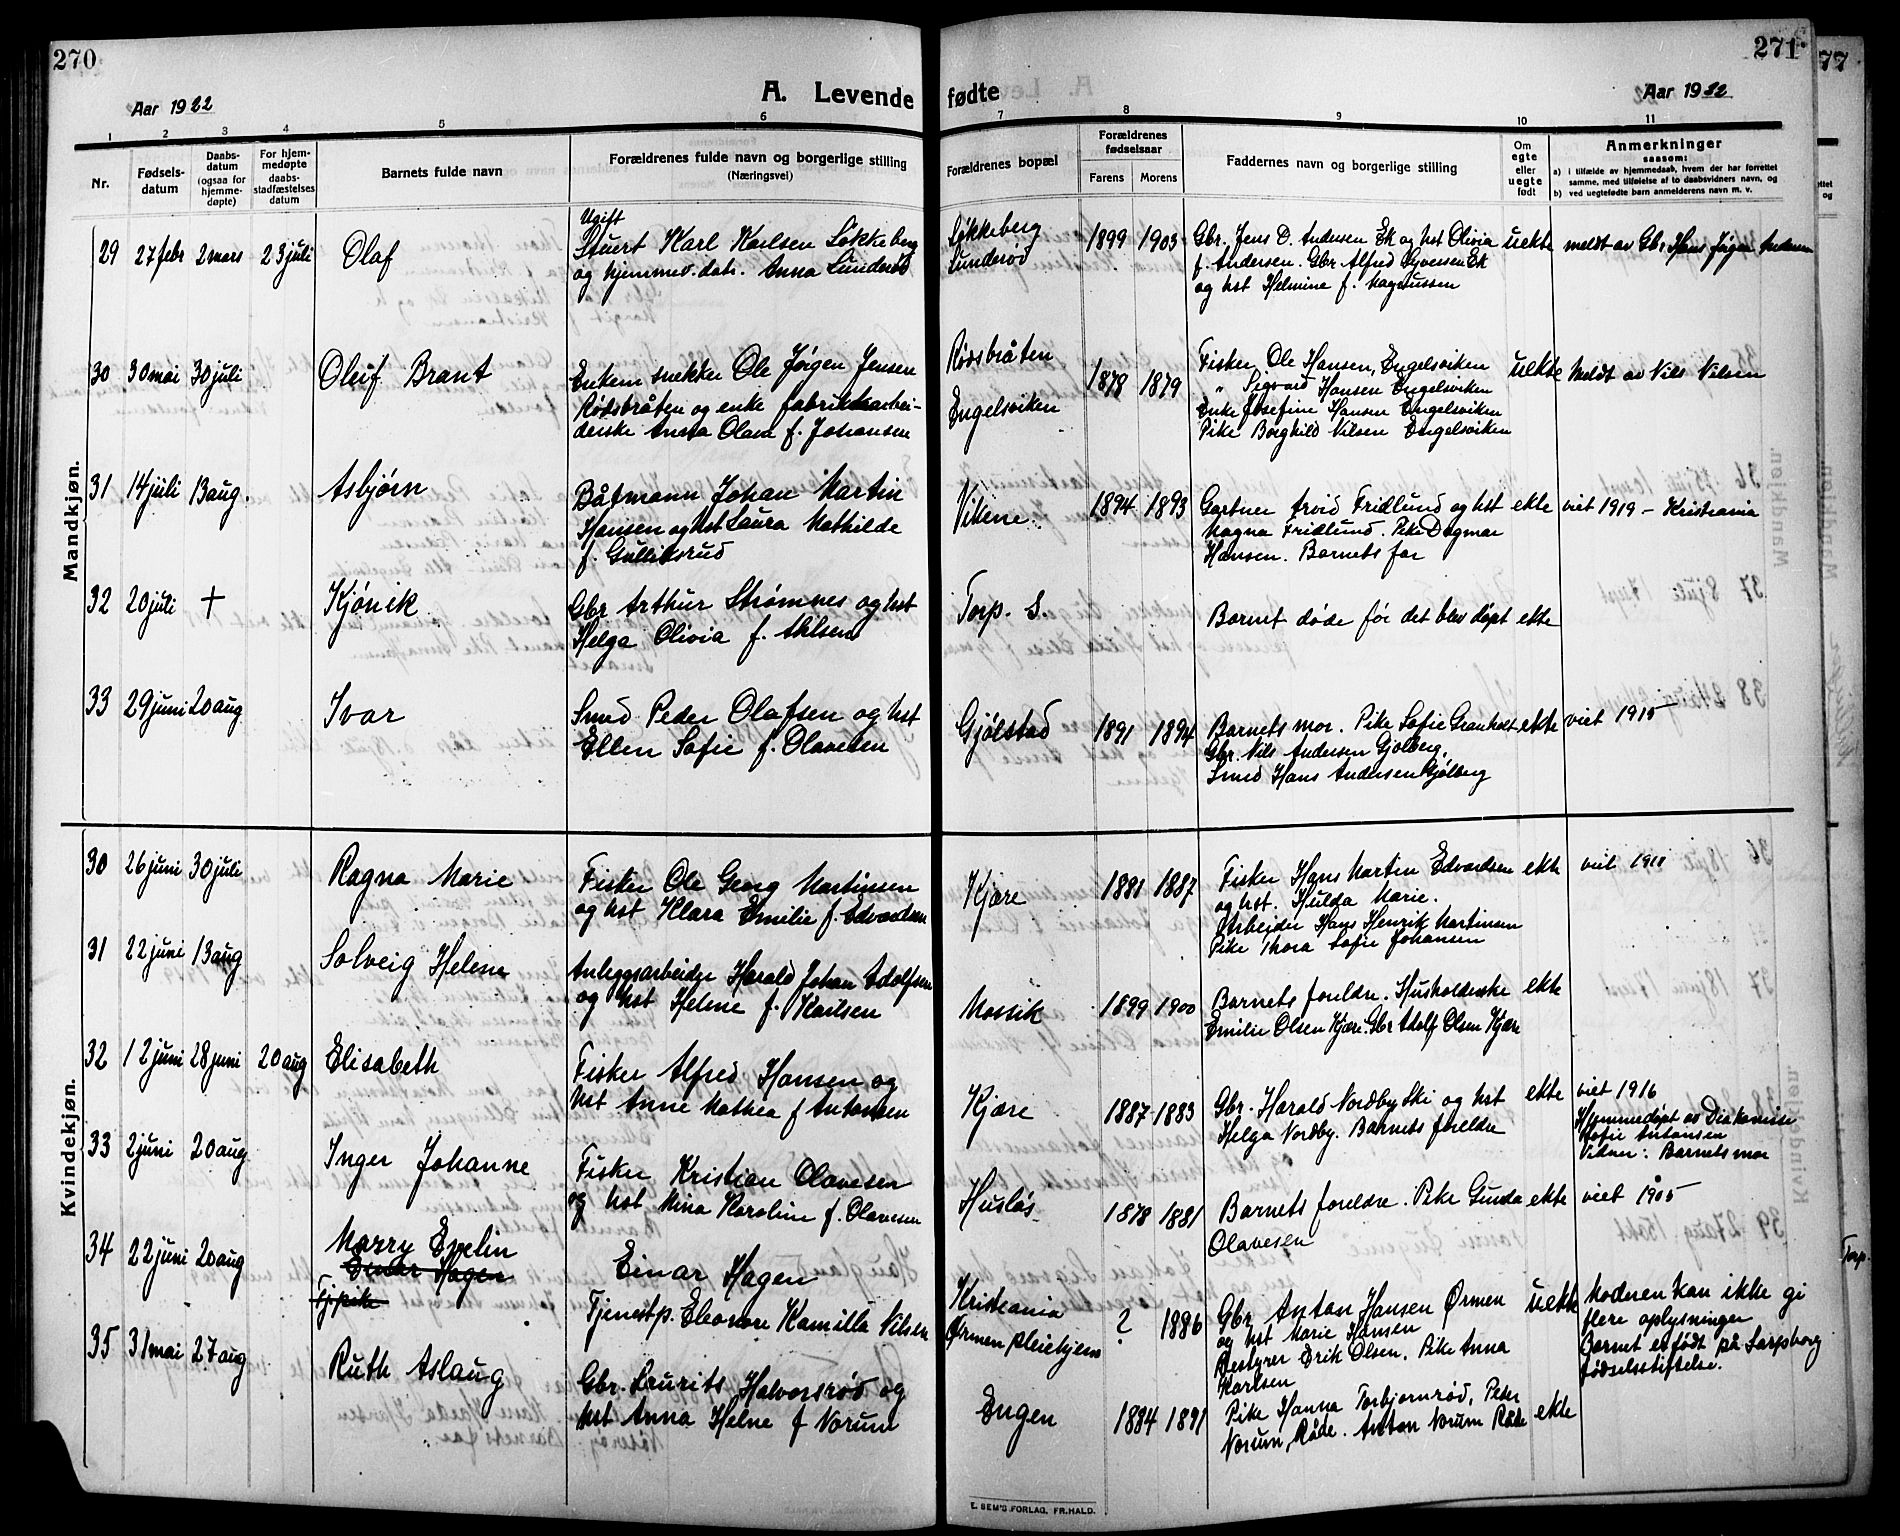 270
271
77
Aar 1922
A. Levende fødte
Aar 1922
1 2 3 4 5 6 7 8 9 10 11
Nr.
Fødsels-
datum
Daabs-
datum
(ogsaa for
hjemme-
døpte)
For hjem-
medøpte
daabs-
stadfæstelses
datum
Barnets fulde navn
Forældrenes fulde navn og borgerlige stilling
(Næringsvei)
Forældrenes bopæl
Forældrenes
fødselsaar
Farens Morens
Faddernes navn og borgerlige stilling
Om
egte
eller
uegte
født
Anmerkninger
saasom:
a) i tilfælde av hjemmedaab, hvem der har forrettet
samme, med tilføielse af to daabsvidners navn, og
b) ved uegtefødte børn anmelderens navn m. v.
Mandkjøn.
29 27 febr 2 mars 23 juli Olaf
Ugift
Stuert Karl Karlsen Løkkeberg
og hjemmev. datr. Anna Lunderød
Løkkeberg
Lunderød
1899 1903
Gbr. Jens D. Andersen Ek og hst Olivia
f. Andersen. Gbr. Alfred Syversen Ek
og hst Helmine f. Magnussen
uekte
meldt av Gbr Hans Jørgen Andersen
30 30 mai 30 juli Oleif Brant
Enkem. snekker Ole Jørgen Jensen
Rødsbråten og enke fabrikkarbei-
derske Anna Olava f. Johansen
Rødsbråten
Engelsviken
1878 1879
Fisker Ole Hansen, Engelsviken
" Sigvard Hansen Engelsviken
Enke Josefine Hansen Engelsviken
Pike Borghild Nilsen Engelsviken
uekte
Meldt av Nils Nilsen
31 14 juli 13 aug. Asbjørn
Båtmann Johan Martin
Hansen og hst Laura Mathilde
f. Gulliksrud
Vikene
1894 1893
Gartner Arvid Fridlund og hst
Magna Fridlund. Pike Dagmar
Hansen. Barnets far
ekte
viet 1919 - Kristiania
32 20 juli + Kjønik
Gbr Arthur Strømnes og hst
Helga Olivia f. Ahlsen
Torp. S.
Barnet døde før det blev døpt ekte
33 29 juni 20 aug Ivar
Smed Peder Olafsen og hst
Ellen Sofie f. Olavesen
Gjølstad
1891 1894
Barnets mor. Pike Sofie Granholt
Gbr. Nils Andersen Gjølberg.
Smed Hans Andersen Gjølberg
ekte
viet 1915
Kvindekjøn.
30 26 juni 30 juli Ragna Marie
Fisker Ole Georg Martinsen
og hst Klara Emilie f. Edvardsen
Kjære
1881 1887
Fisker Hans Martin Edvardsen
og hst. Hulda Marie.
Arbeider Hans Henrik Martinsen
Pike Thora Sofie Johansen
ekte
viet 1911
31 22 juni 13 aug Solveig Helene
Anleggsarbeider Harald Johan Adolfsen
og hst Helene f. Karlsen
Mossik
1899 1900
Barnets foreldre. Husholderske
Emilie Olsen Kjære. Gbr Adolf Olsen Kjære
ekte
32 12 juni 28 juni 20 aug Elisabeth
Fisker Alfred Hansen og
hst Anne Mathea f Antonsen
Kjære
1887 1883
Gbr. Harald Nordby Ski og hst
Helga Nordby. Barnets foreldre
ekte
viet 1916
Hjemmedøpt av Diakonisse
Sofie Antonsen
Vidner: Barnets mor
33 2 juni 20 aug Inger Johanne
Fisker Kristian Olavesen
og hst Mina Karoline f. Olavesen
Husløs
1878 1881
Barnets foreldre. Pike Gunda
Olavesen
ekte
viet 1905
34 22 juni 20 aug Marry Evelin
Einar Hagen
Tj.pike
Einar Hagen
Tjenestp. Eleonore Kamilla Nilsen
Kristiania
Ørmen pleiehjem
? 1886
Gbr Anton Hansen Ørmen
og hst Marie Hansen
Bestyrer Erik Olsen. Pike Anna
Karlsen
uekte
Moderen kan ikke gi
flere oplysninger
Barnet er født på Sarpsborg
fødselsstiftelse.
35 31 mai 27 aug Ruth Aslaug
Gbr. Laurits Halvorsrød og
hst Anna Helne f Norum
Engen
1884 1891
Pike Hanna Torbjørnrød, Peder
Norum, Råde. Anton Norum Råde
ekte
Torp
E. SEM'S FORLAG, FR.HALD.